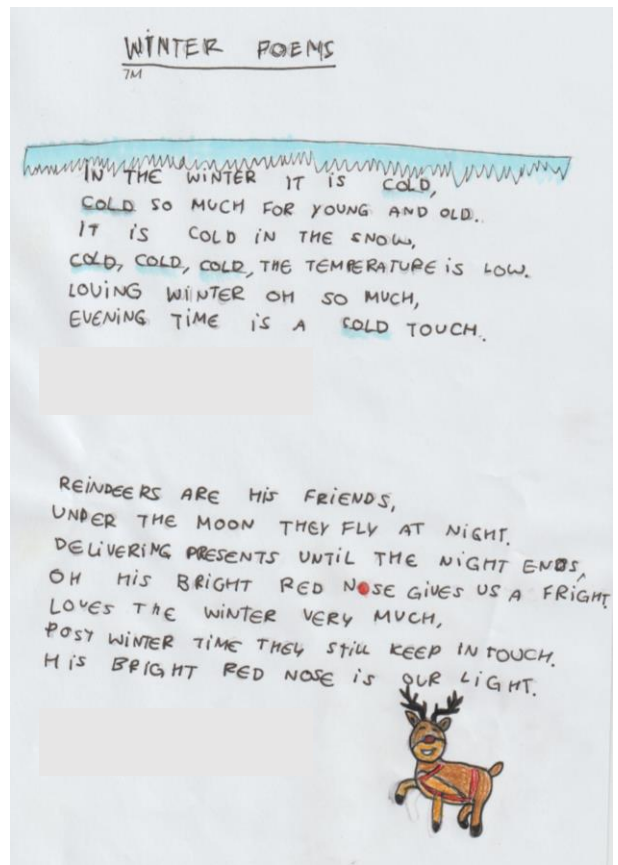 WINTER POEMS
7M
IN THE WINTER IT IS COLD,
COLD SO MUCH FOR YOUNG AND OLD.
IT IS COLD IN THE SNOW,
COLD, COLD, COLD, THE TEMPERATURE IS LOW.
LOVING WINTER OH SO MUCH,
EVENING TIME IS A COLD TOUCH.
REINDEERS ARE HIS FRIENDS,
UNDER THE MOON THEY FLY AT NIGHT.
DELIVERING PRESENTS UNTIL THE NIGHT ENDS,
OH HIS BRIGHT RED NOSE GIVES US A FRIGHT.
LOVES THE WINTER VERY MUCH,
POST WINTER TIME THEY STILL KEEP IN TOUCH.
HIS BRIGHT RED NOSE IS OUR LIGHT.